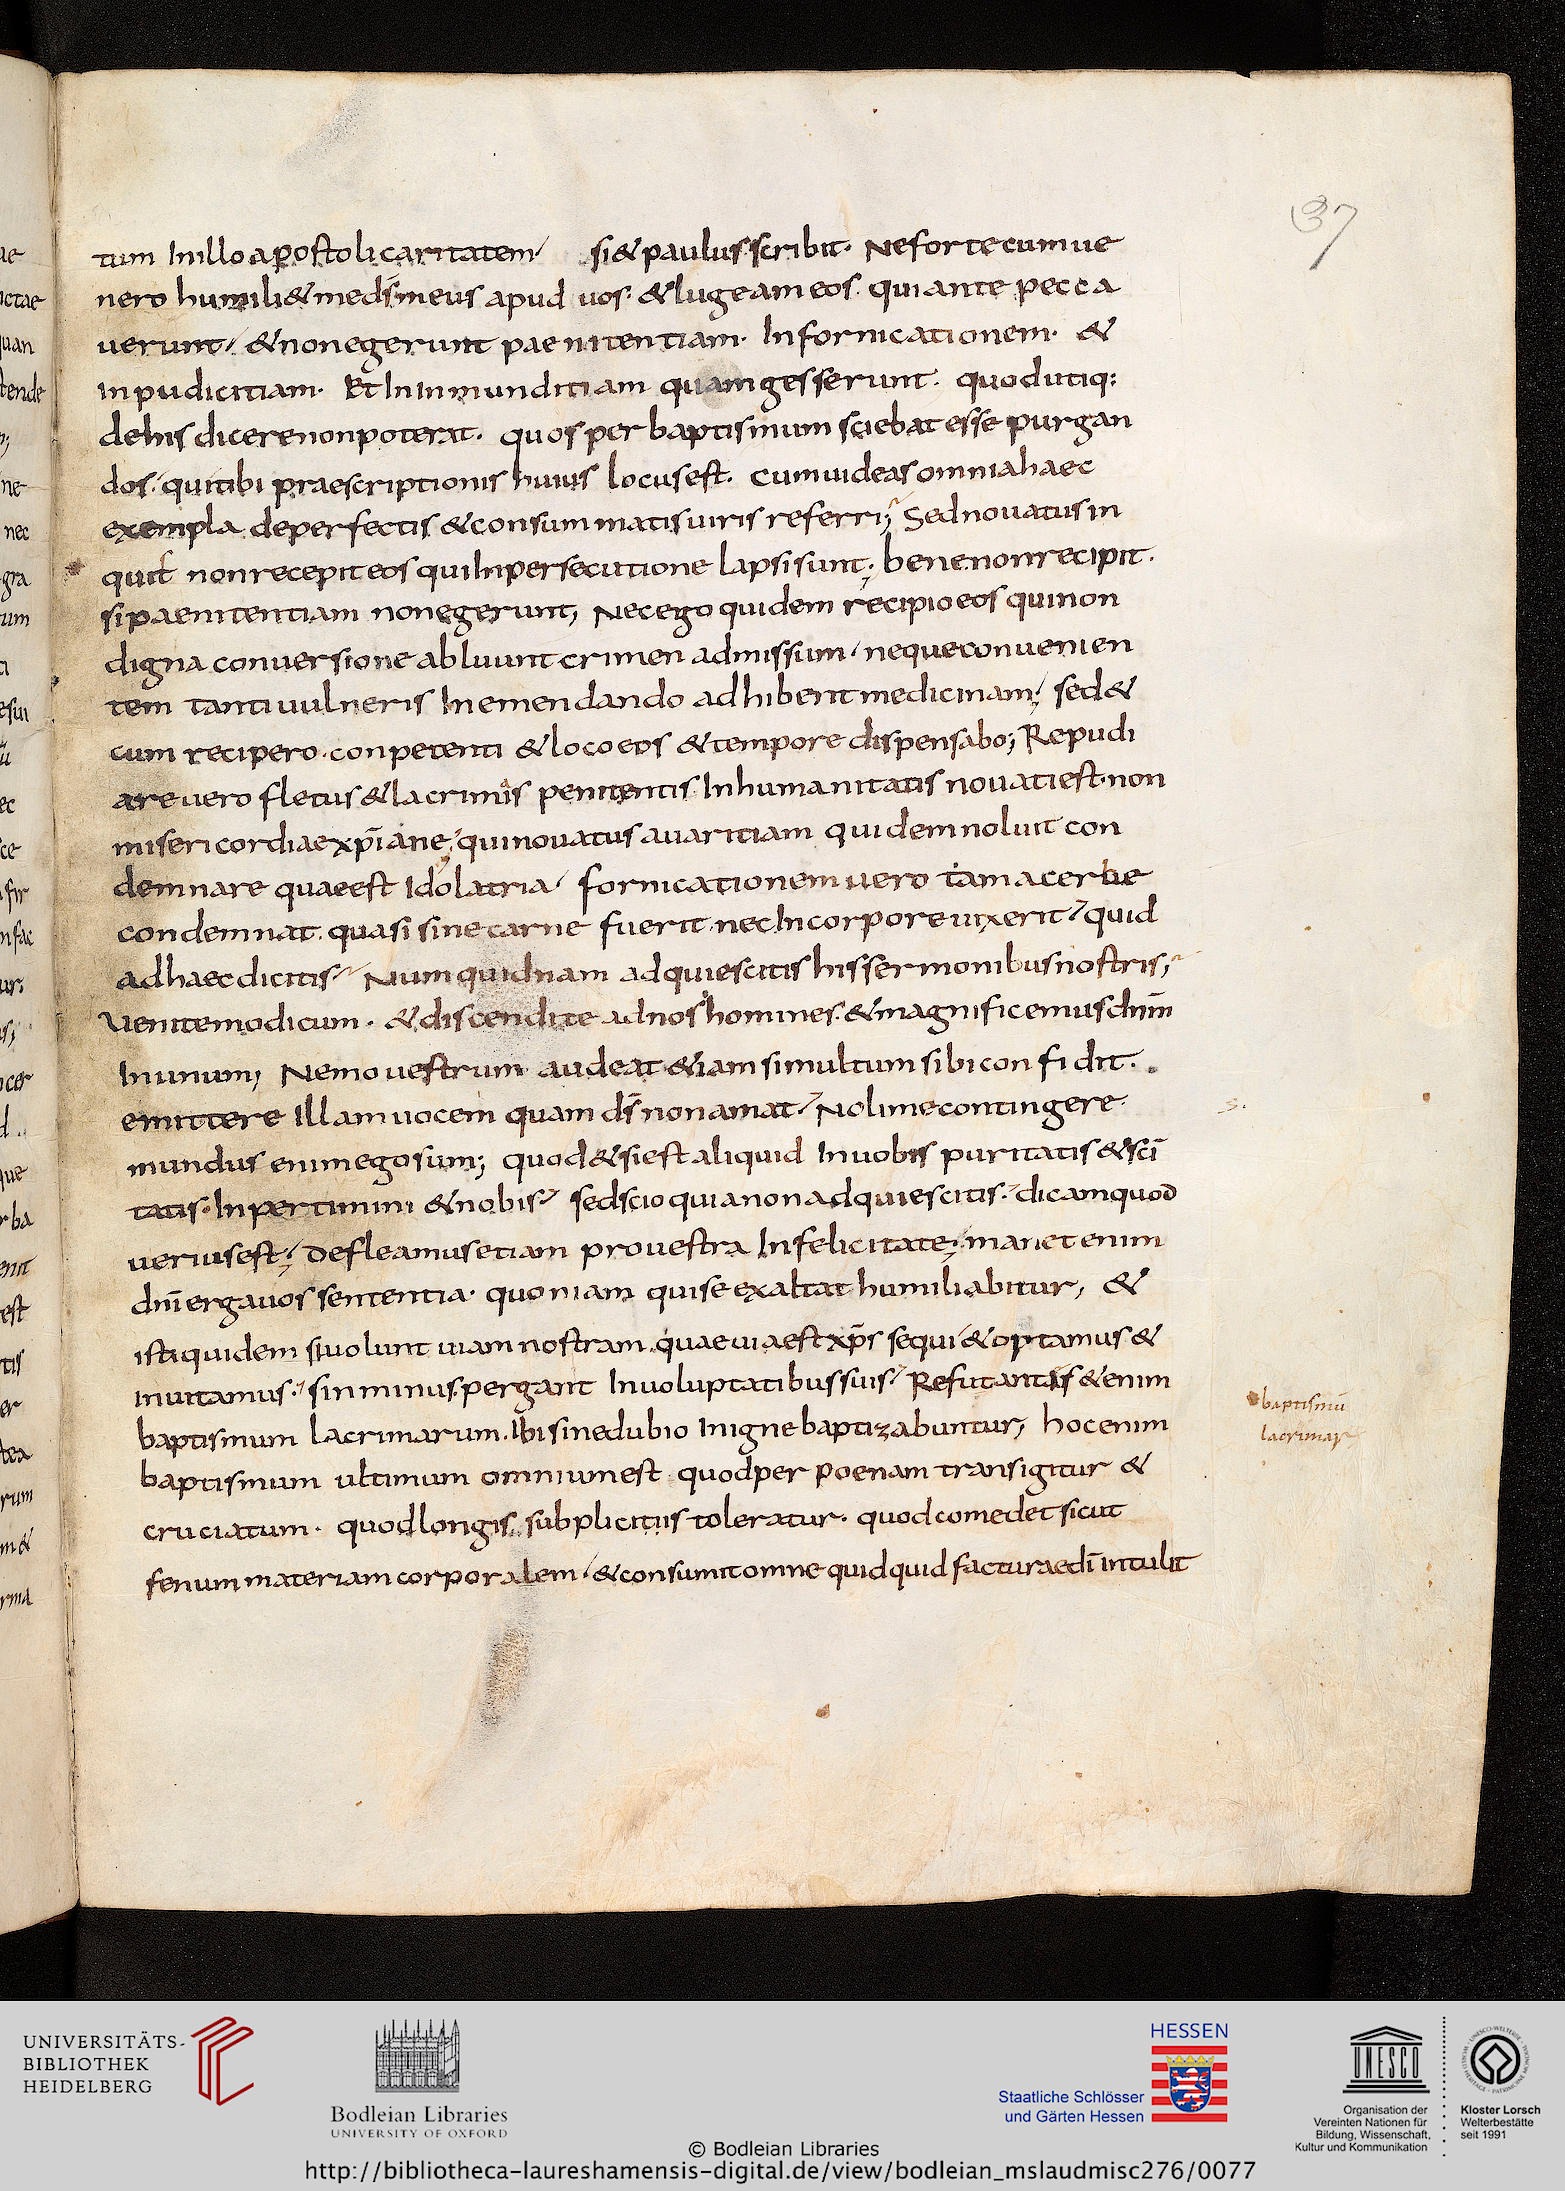 37
tum In illo apostoli caritatem si & paulus scribit. Ne forte cum ue
nero humili& me ds̄ meus apud uos. & lugeam eos. qui ante pecca
uerunt, & non egerunt paenitentiam. In fornicationem. &
inpudicitiam. Et In Inmunditiam quam gesserunt. quod utiq:
de his dicere non poterat. quos per baptismum sciebat esse purgan
dos, qui tibi praescriptionis huius locus est. cum uideas omnia haec
exempla de perfectis & consummatis uiris referri; Sed nouatus in
quit non recepit eos qui In persecutione lapsi sunt; bene non recipit.
si paenitentiam non egerunt; Nec ego quidem recipio eos qui non
digna conuersione abluunt crimen admissum, neque conuenien
tem tanti uulneris In emendando adhibent medicinam; sed &
cum recipero. conpetenti & loco eos & tempore dispensabo; Repudi
are uero fletus & lacrimis penitentis Inhumanitatis nouati est. non
misericordiae xp̄iane; qui nouatus auaritiam quidem noluit con
demnare quae est Idolatria, fornicationem uero tam acerbe
condemnat. quasi sine carne fuerit. nec In corpore uixerit, quid
ad haec dicitis, Numquidnam adquiescitis his sermonibus nostris;
Uenite modicum. & discendite ad nos homines. & magnificemus dn̄m
In unum; Nemo uestrum audeat &iam si multum sibi confidit.
emittere Illam uocem quam ds̄ non amat, Noli me contingere.
mundus enim ego sum; quod & si est aliquid In uobis puritatis & sc̄i
tatis. Inpertimini & nobis, sed scio quia non adquiescitis, dicam quod
uerius est; Defleamus etiam pro uestra Infelicitate; manet enim
dn̄i erga uos sententia. quoniam qui se exaltat humiliabitur, &
isti quidem si uolunt uiam nostram. quae uia est xp̄s sequi, & optamus &
inuitamus, sin minus. pergant In uoluptatibus suis, Refutantes &enim
baptismum lacrimarum. Ibi sine dubio Inigne baptizabuntur, hoc enim
baptismum ultimum omnium est quod per poenam transigitur &
cruciatum. quod longis subpliciiis toleratur. quod comedet sicut
fenum materiam corporalem, & consumit omne quidquid facturae dī intulit
baptismū
lacrimar
UNIVERSITÄTS-
BIBLIOTHEK
HEIDELBERG
Bodleian Libraries
UNIVERSITY OF OXFORD
HESSEN
Staatliche Schlösser
und Gärten Hessen
UNESCO
Organisation der
Vereinten Nationen für
Bildung, Wissenschaft,
Kultur und Kommunikation
Kloster Lorsch
Welterbestätte
seit 1991
© Bodleian Libraries
http://bibliotheca-laureshamensis-digital.de/view/bodleian_mslaudmisc276/0077